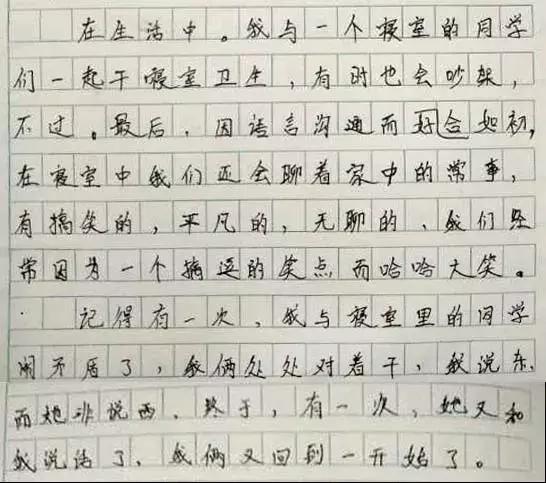 在生活中。我与一个寝室的同学
们一起干寝室卫生，有时也会吵架，
不过。最后，因语言沟通而好合如初，
在寝室中我们还会聊着家中的常事，
有搞笑的，平凡的，无聊的、我们经
常因为一个搞逗的笑点而哈哈大笑。
记得有一次，我与寝室里的同学
闹矛盾了，我俩处处对着干，我说东，
而她非说西，终于，有一次，她又和
我说话了，我俩又回到一开始了。